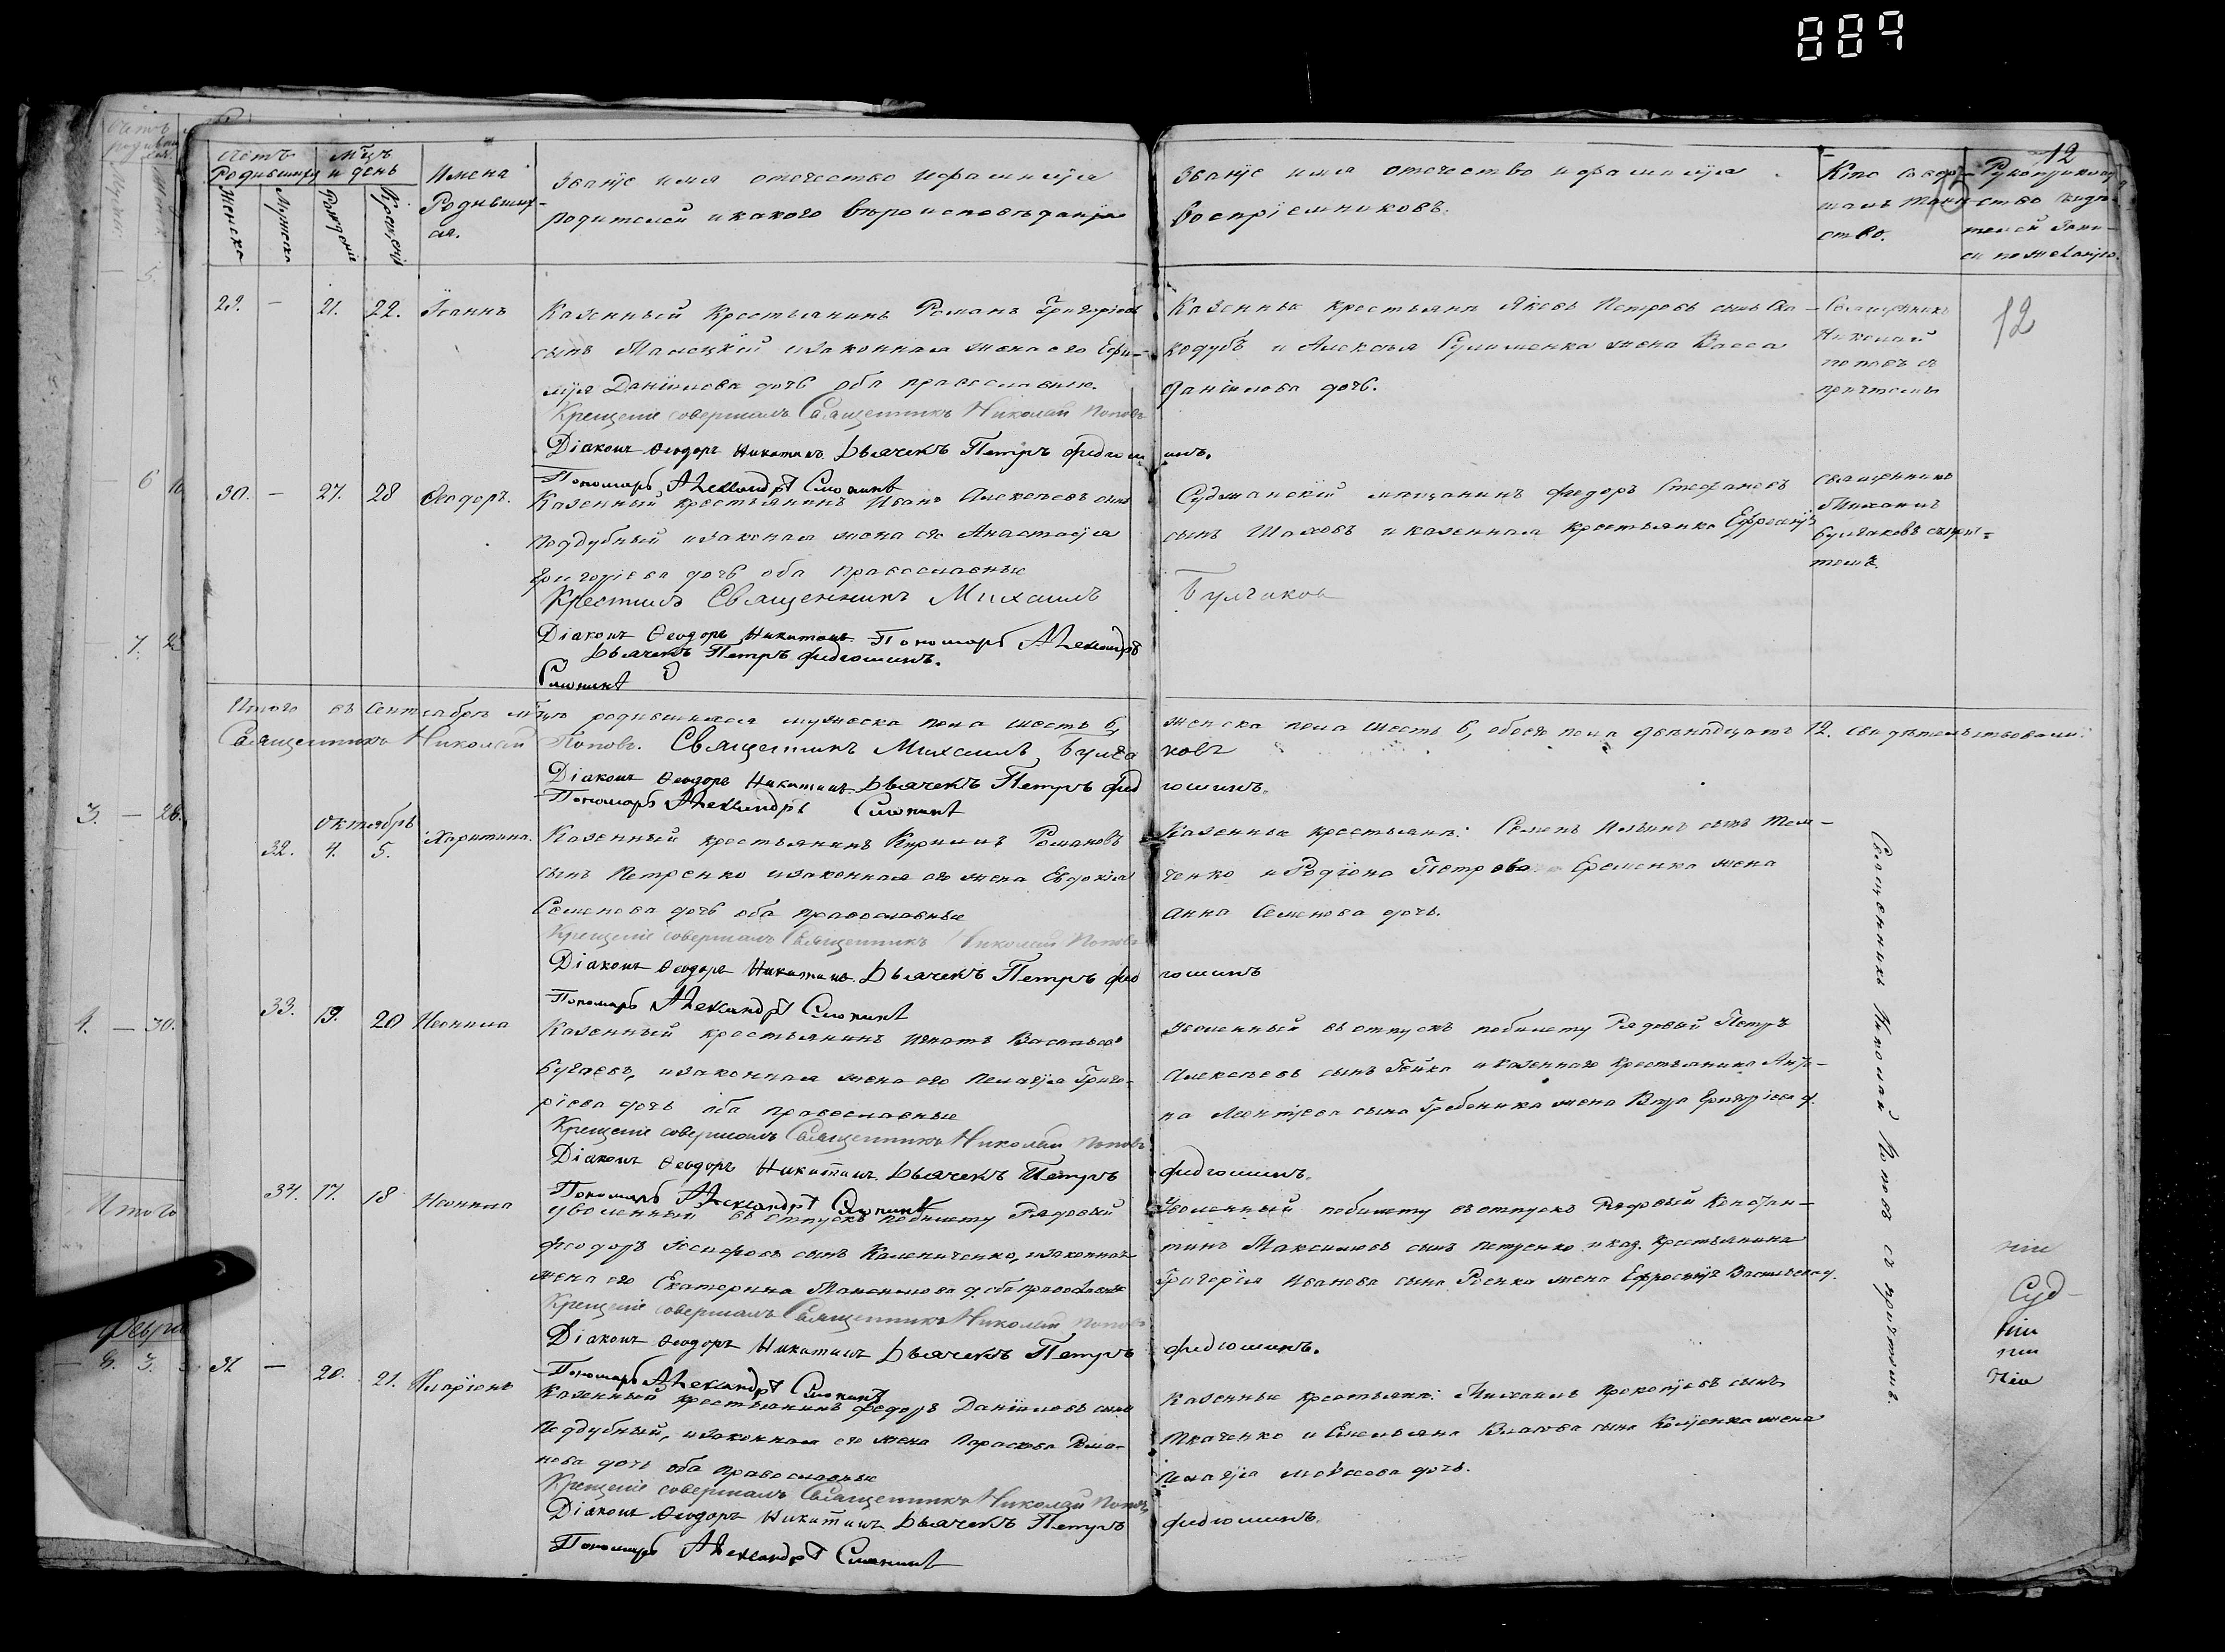 889
12
Счетъ Родившихся
Мц̃ъ и день
Имена Родившихся.
Званіе имя отечество и фамилія родителей и какого вѣроисповѣданія
Званіе имя отечество и фамилія воспріемниковъ.
Кто совершалъ таинство.
Рукоприкладство свидѣтелей записи по желанію.
Женска
Мужска
Рожденіе
Крещеніе
— 21. 22. Іоаннъ
Казенный Крестьянинъ Романъ Григоріевъ
сынъ и законная жена его Ефи-
мія Даніилова дочь оба православные.
Крещеніе совершалъ Священникъ Николай Поповъ
Діаконъ Ѳеодоръ Никитинъ Дьячекъ Петръ Федюшинъ.
Пономарь Александръ
Казенные крестьяне Яковъ Петровъ сынъ Ска-
кодубъ и Алексѣя жена Васса
Даніилова дочь.
Священникъ
Николай
Поповъ съ
причтомъ
12
30. — 27. 28 Ѳеодоръ.
Казенный крестьянинъ Иванъ Алексѣевъ сынъ
Поддубный и законная жена его Анастасія
Григоріева дочь оба православные
Крестилъ Священникъ Михаилъ Булгаковъ
Діаконъ Ѳеодоръ Никитинъ Пономарь Александръ
Дьячекъ Петръ Федюшинъ.
Суджанскій мѣщанинъ Федоръ Стефановъ
сынъ Шаховъ и казенная крестьянка Ефросинія
Священникъ
Михаилъ
Булгаковъ съ причтомъ.
Итого въ Сентябрѣ мц̃ѣ родившихся мужеска пола шесть 6, женска пола шесть 6, обоего пола двѣнадцать 12. свидѣтельствовали:
Священникъ Николай Поповъ. Священникъ Михаилъ Булгаковъ
Діаконъ Ѳеодоръ Никитинъ Дьячекъ Петръ Федюшинъ.
Пономарь Александръ
Октябрь
32. 4. 5. Харитина.
Казенный крестьянинъ Кирилъ Романовъ
сынъ Петренко и законная его жена Евдокія
Семенова дочь оба православные
Крещеніе совершалъ Священникъ Николай Поповъ
Діаконъ Ѳеодоръ Никитинъ Дьячекъ Петръ Федюшинъ
Пономарь Александръ
Казенные крестьяне: Семенъ Ильинъ сынъ Тем-
ченко и Родіона Петрова Еременка жена
Анна Семенова дочь.
Священникъ Николай Поповъ съ причтомъ.
33. 19. 20 Неонила
Казенный крестьянинъ Игнатъ Васильевъ
Бугаевъ, и законная жена его Пелагія Григо-
ріева дочь оба православные
Крещеніе совершалъ Священникъ Николай Поповъ
Діаконъ Ѳеодоръ Никитинъ Дьячекъ Петръ Федюшинъ.
Пономарь Александръ
Уволенный въ отпускъ по билету Рядовый Петръ
Алексѣевъ сынъ Гейко и казеннаго крестьянина
Леонтіева сына Гребеника жена Вѣра Григоріева д.
34. 17. 18 Неонила
Уволенный въ отпускъ по билету Рядовый
Феодоръ Іосифовъ сынъ Калениченко, и законная
жена его Екатерина д. оба православные
Крещеніе совершалъ Священникъ Николай Поповъ
Діаконъ Ѳеодоръ Никитинъ Дьячекъ Петръ Федюшинъ.
Пономарь Александръ
Уволенный по билету въ отпускъ Рядовый Констан-
тинъ Максимовъ сынъ Петренко и каз. крестьянина
Григорія Иванова сына Роенка жена Ефросинія Васильева д.
31 — 20. 21. Иларіонъ
Казенный крестьянинъ Федоръ Даніиловъ сынъ
Поддубный, и законная его жена Параскева Рома-
нова дочь оба православные
Крещеніе совершалъ Священникъ Николай Поповъ
Діаконъ Ѳеодоръ Никитинъ Дьячекъ Петръ Федюшинъ.
Пономарь Александръ
Казенные крестьяне: Михаилъ Прокопіевъ сынъ
Ткаченко и Емельяна Власова сына жена
Пелагія Моѵсеова дочь.
Итого
Февра
Суд-